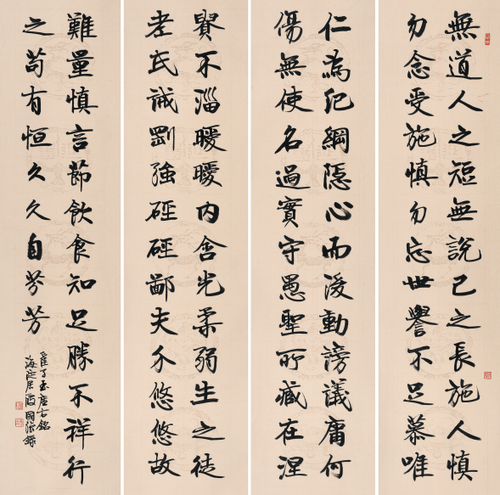 無道人之短無說己之長施人慎
勿念受施慎勿忘世譽不足慕唯
仁為紀綱隱心而後動謗議庸何
傷無使名過實守愚聖所藏在涅
貴不淄曖曖內含光柔弱生之徒
老氏誡剛強硜硜鄙夫介悠悠故
難量慎言節飲食知足勝不祥行
之苟有恒久久自芬芳
崔子玉座右銘